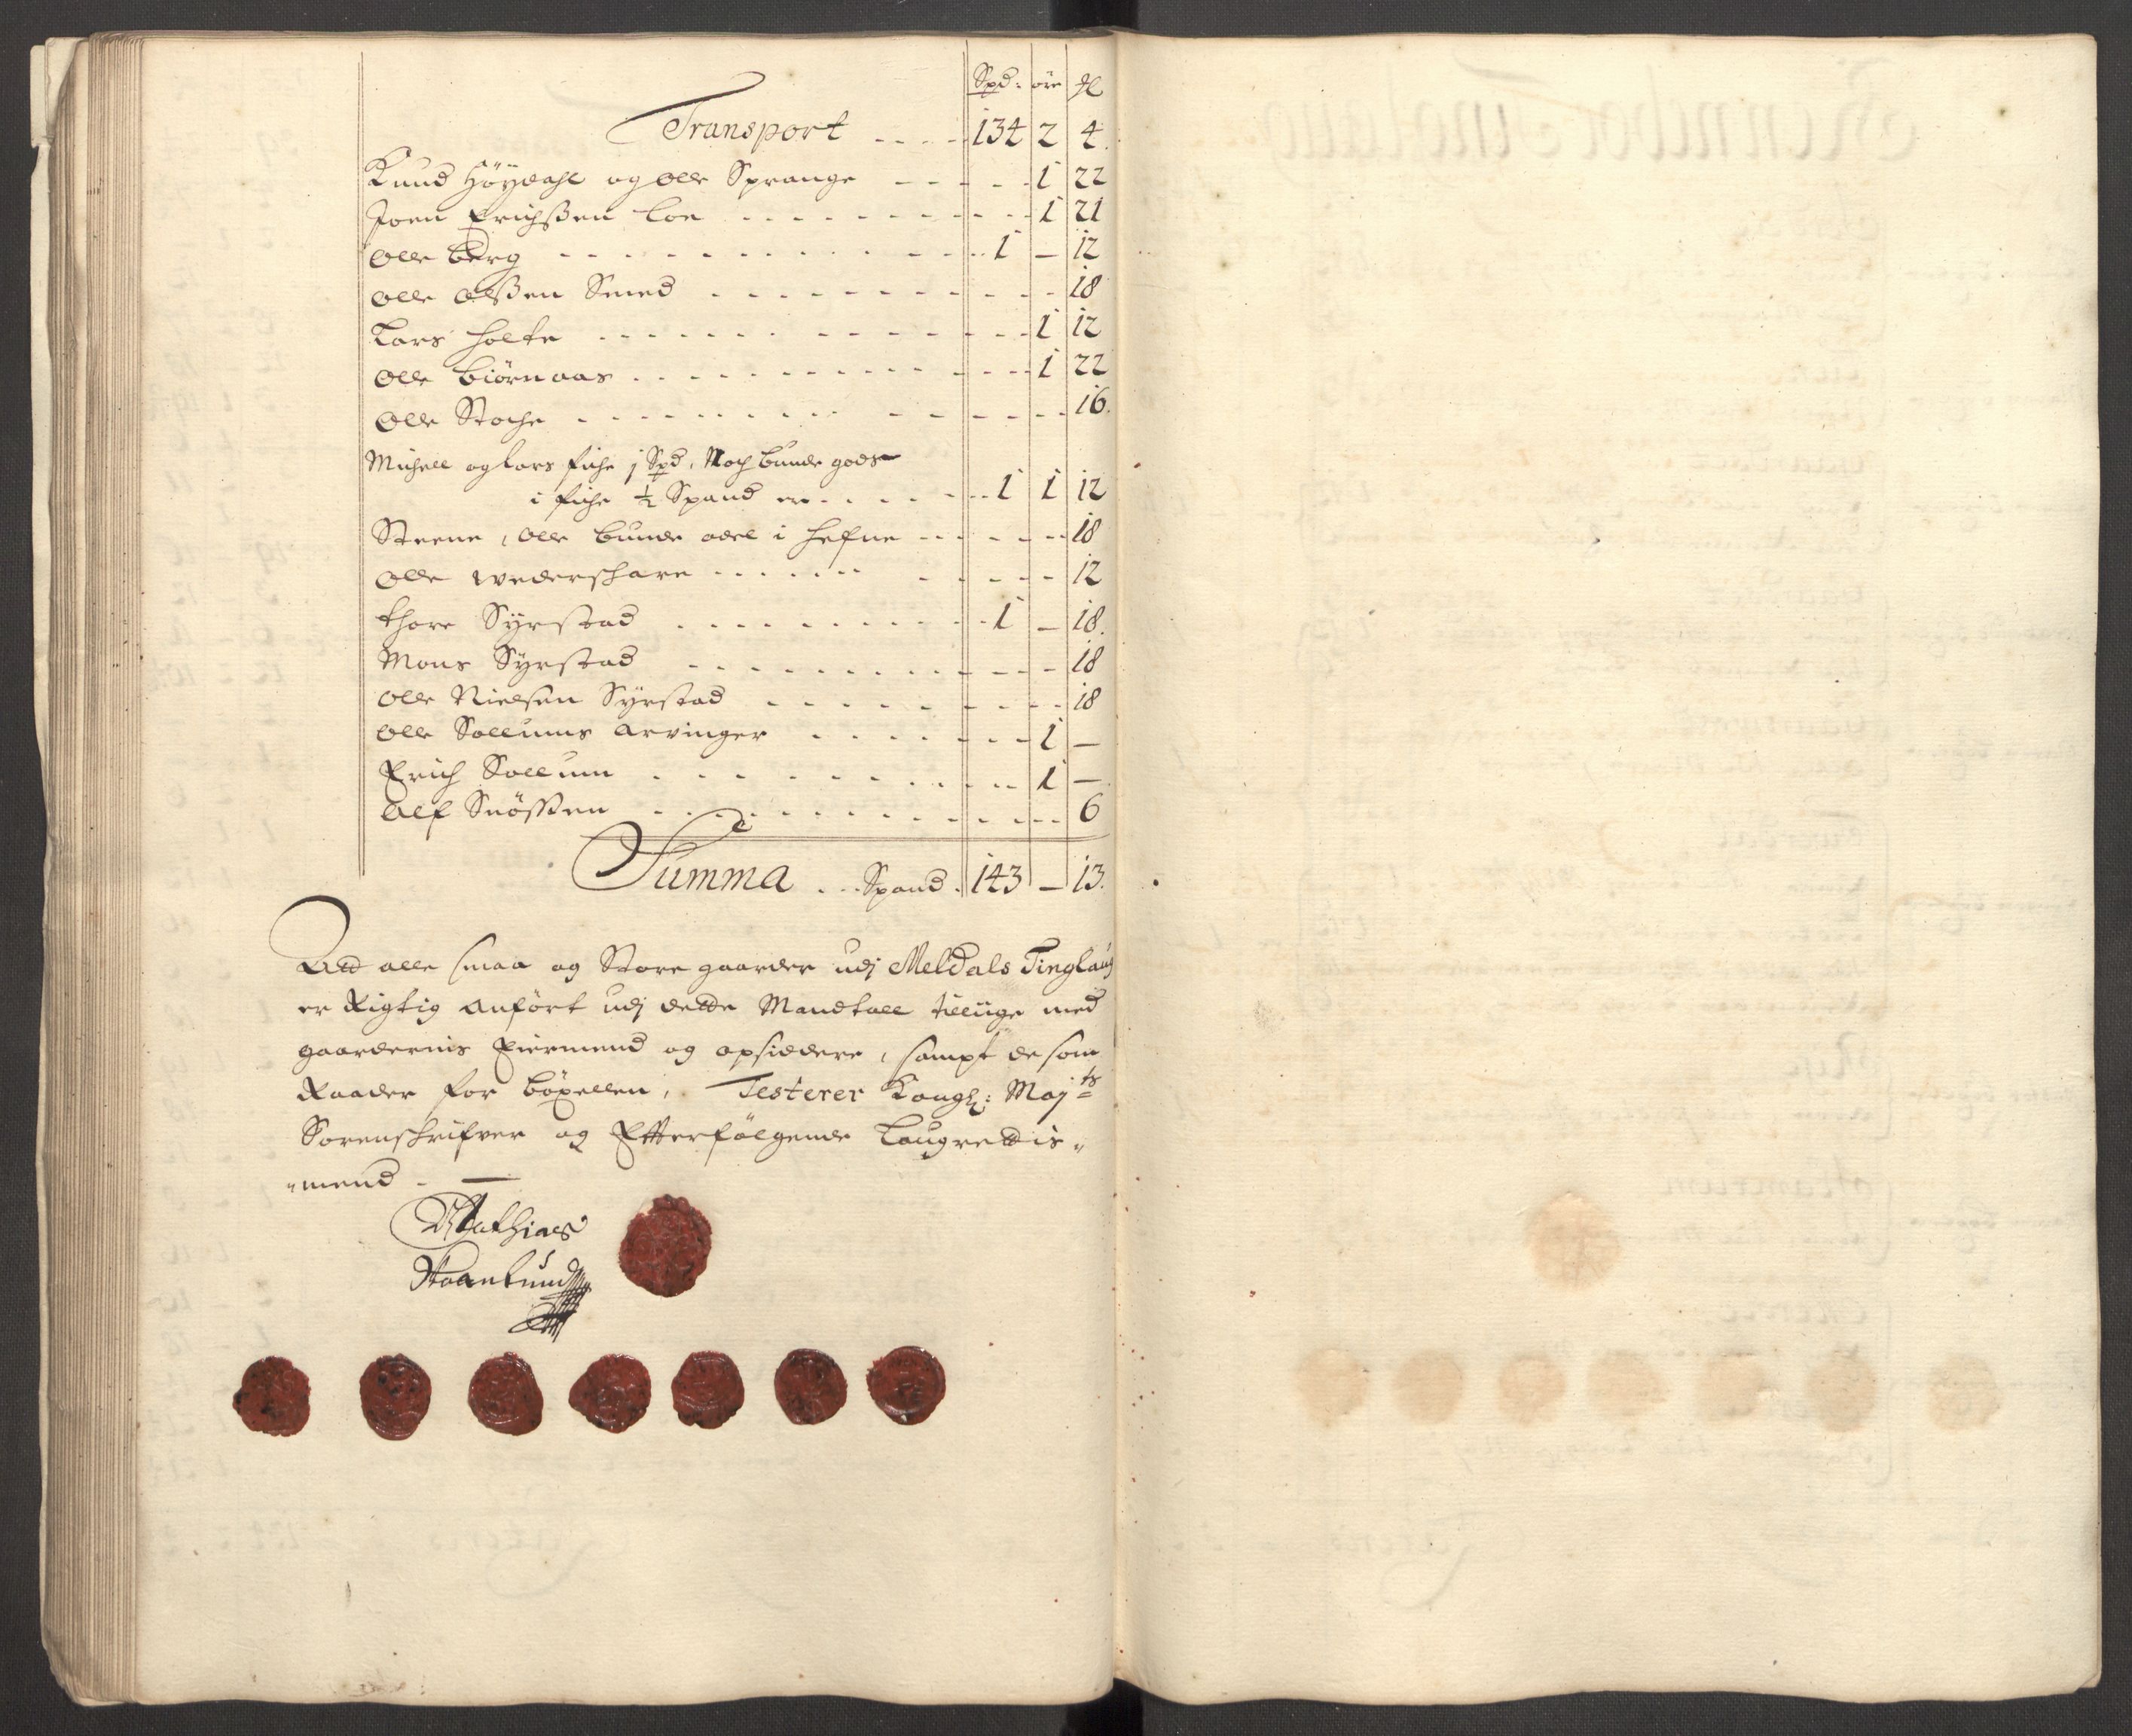 Spd: öre ₰
Transport .... 134 2 4.
Knud Höydahl og Olle Sprange - - - 1 22
Joen Erichßen Loe . . . . 1 21
Olle Berg - - - 1 — 12
Olle Olßen Smed - - - 18
Lars Holte - - - 1 12
Olle Biörnaas - - - 1 22
Olle Stoche - - - 16.
Michell og Lars fiche j Spd, Noch bunde gods
i fiche ½ Spand er . . . . 1 1 12
Steene, Olle bunde odel i Hefne - - - 18
Olle wederschare - - - 12
Thore Syrstad - - - 1 — 18.
Mons Syrstad - - - 18
Olle Nielsen Syrstad - - - 18
Olle Sollums Arvinger - - - 1 —
Erich Sollum - - - 1 —
Olf Snößen - - - 6
Summa ... Spand. 143 — 13.
Att alle smaa og Store gaarder udj Meldals Tinglaug
er Rigtig Anfört udj dette Mandtall tilliige med
gaardernis Eiermend og opsiddere, sampt de som
Raader for böxellen, Testerer Kongl: Maj:ts
Sorenschrifver og Efterfölgende Laugrettis„
„mend. —
Mathias